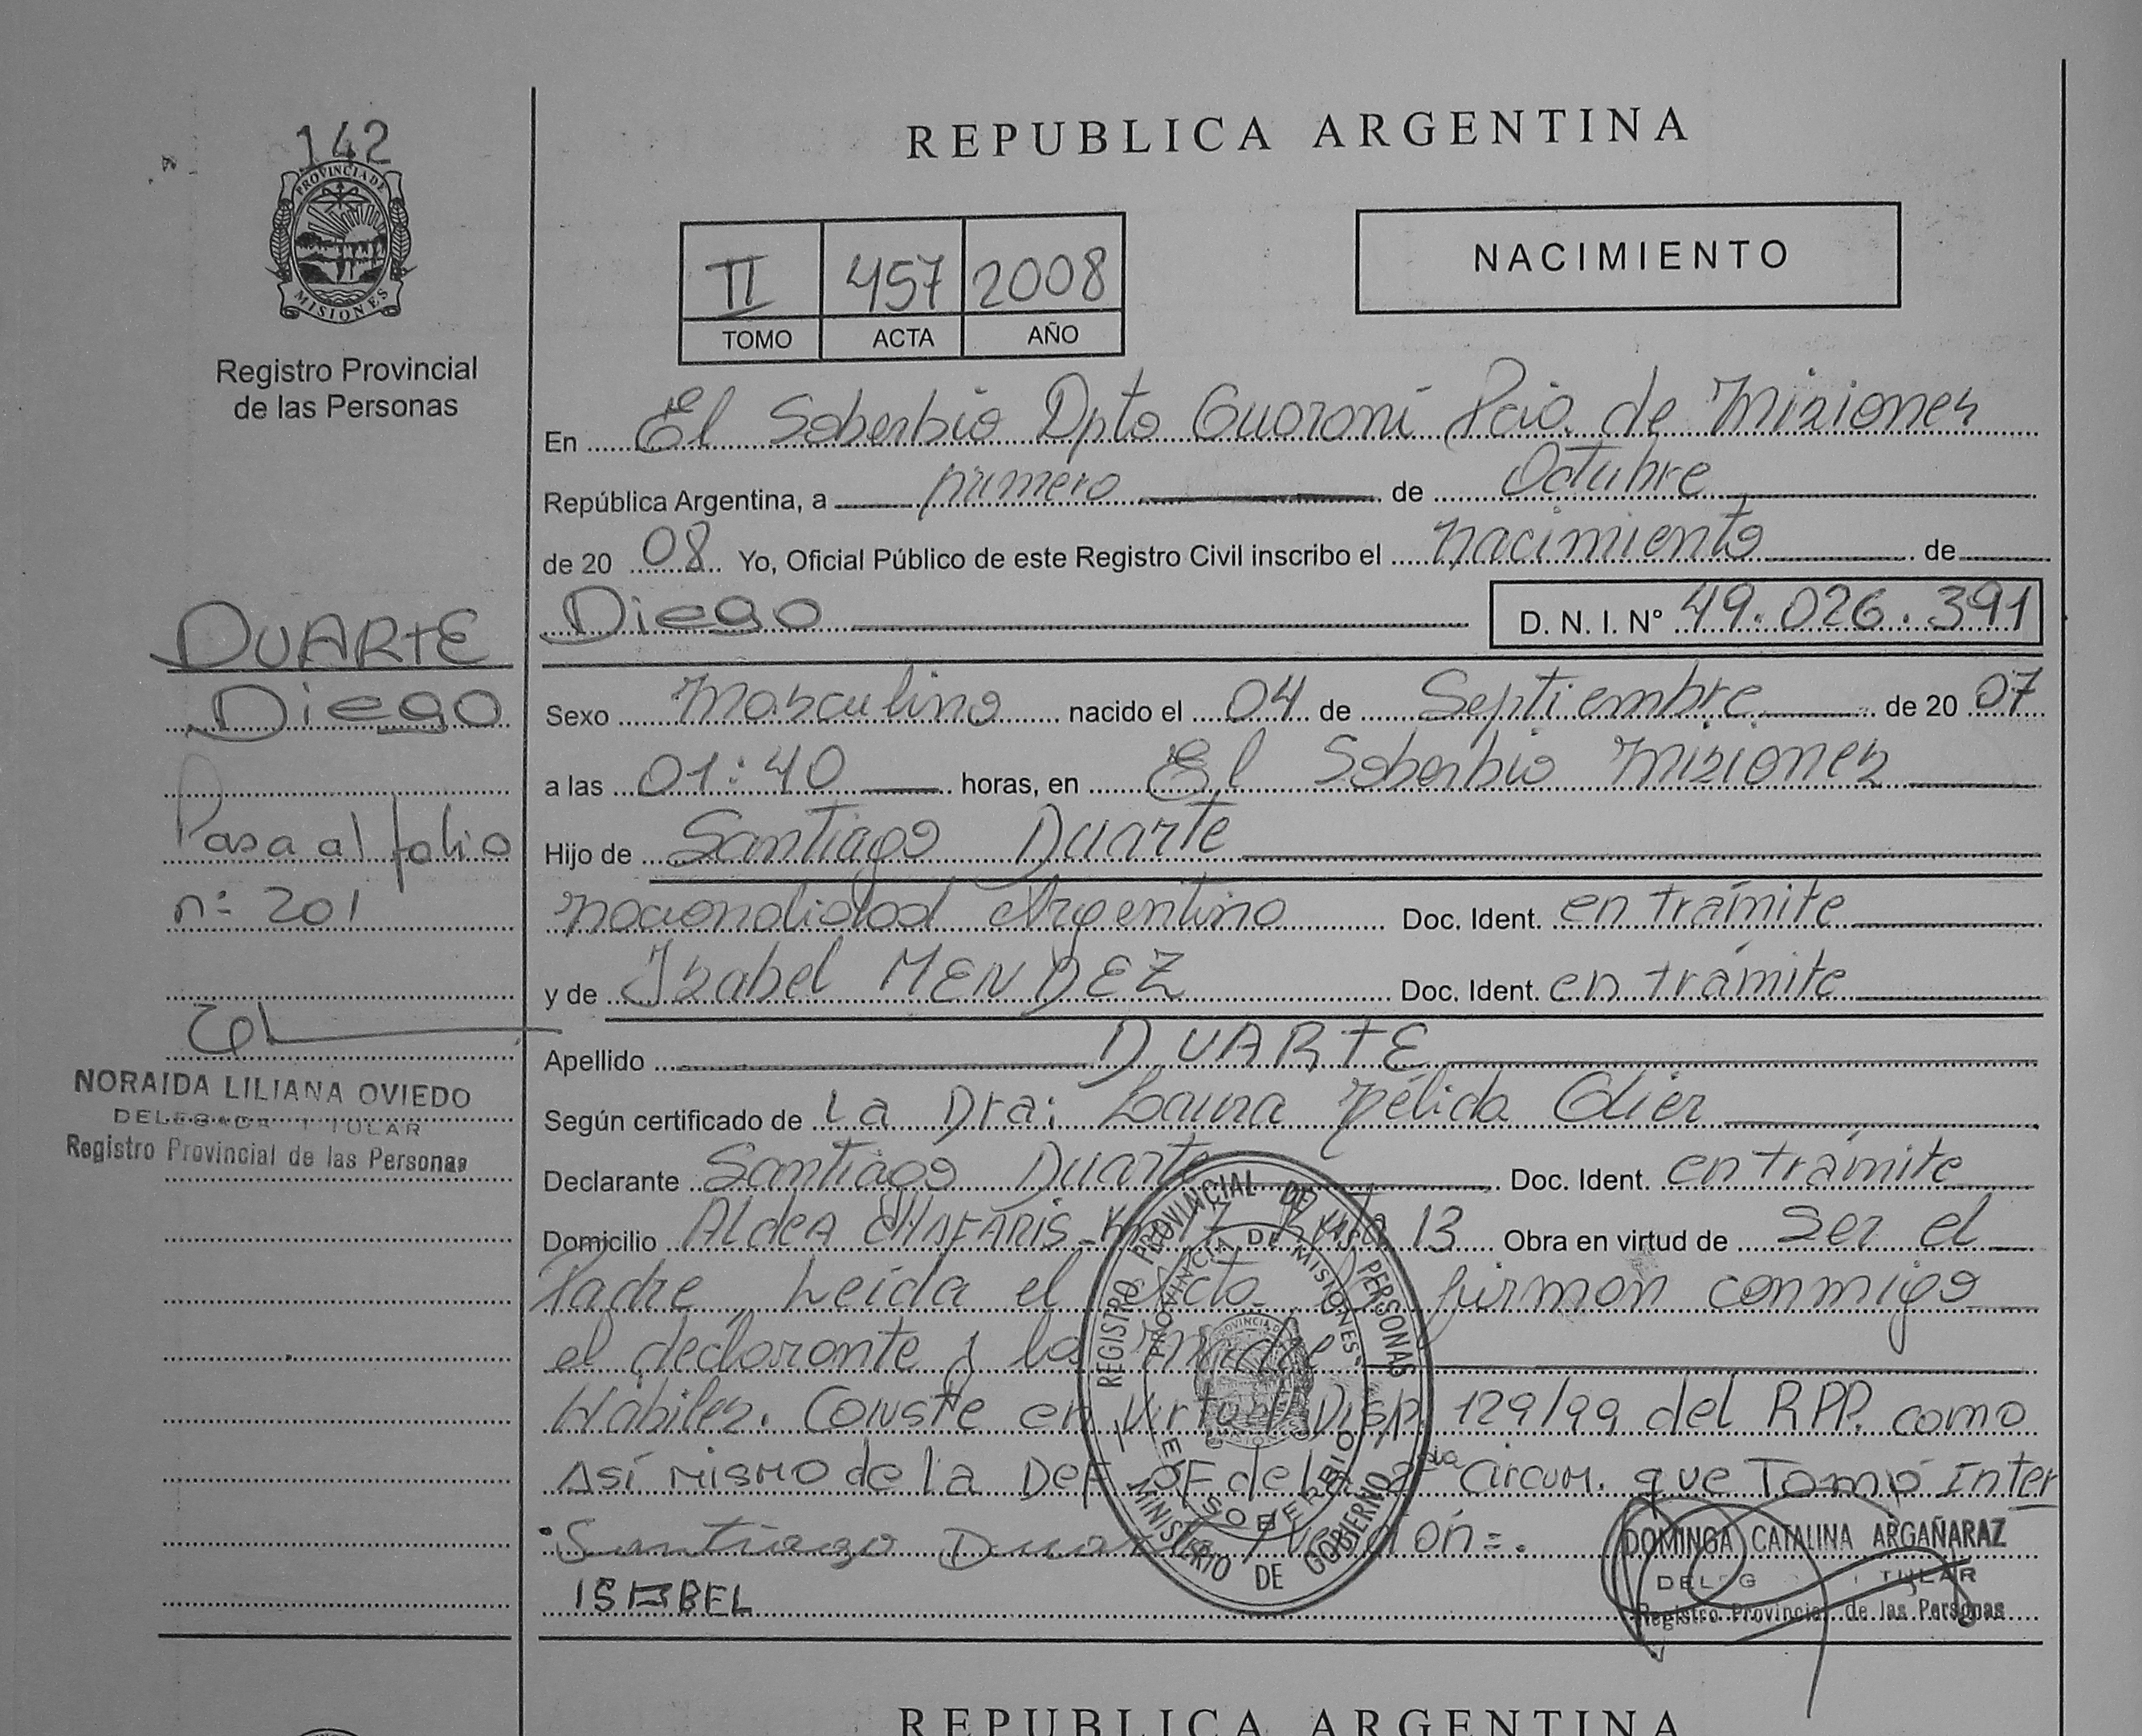 142
PROVINCIA DE
MISIONES
Registro Provincial
de las Personas
REPUBLICA ARGENTINA
II 457 2008
TOMO ACTA AÑO
NACIMIENTO
En El Soberbio Dpto Guaraní Pcia. de Misiones
República Argentina, a primero de Octubre
de 20 08 Yo, Oficial Público de este Registro Civil inscribo el nacimiento de
Diego D. N. I. Nº 49.026.391
DUARTE
Diego
Pasa al folio
nº 201
NORAIDA LILIANA OVIEDO
DELEGADA TITULAR
Registro Provincial de las Personas
Sexo Masculino nacido el 04 de Septiembre de 20 07
a las 01:40 horas, en El Soberbio Misiones
Hijo de Santiago Duarte
nacionalidad Argentina Doc. Ident. en trámite
y de Isabel MENDEZ Doc. Ident. en trámite
Apellido DUARTE
Según certificado de la Dra: Laura Nélida Olier
Declarante Santiago Duarte Doc. Ident. en trámite
Domicilio Aldea CHAFARIS - Km 17 Ruta 13 Obra en virtud de ser el
Padre, Leída el Acta firman conmigo
el declarante y la madre
Hábiles. Conste en virtud Disp. 129/99 del RPP. como
Así mismo de la DEF OF de la 2da Circun. que Tomó Inter
Santiago Duarte vención=.
ISABEL
REGISTRO PROVINCIAL DE LAS PERSONAS
PROVINCIA DE MISIONES
EL SOBERBIO
MINISTERIO DE GOBIERNO
DOMINGA CATALINA ARGAÑARAZ
DELEG TULAR
Registro Provincial de las Personas
REPUBLICA ARGENTINA